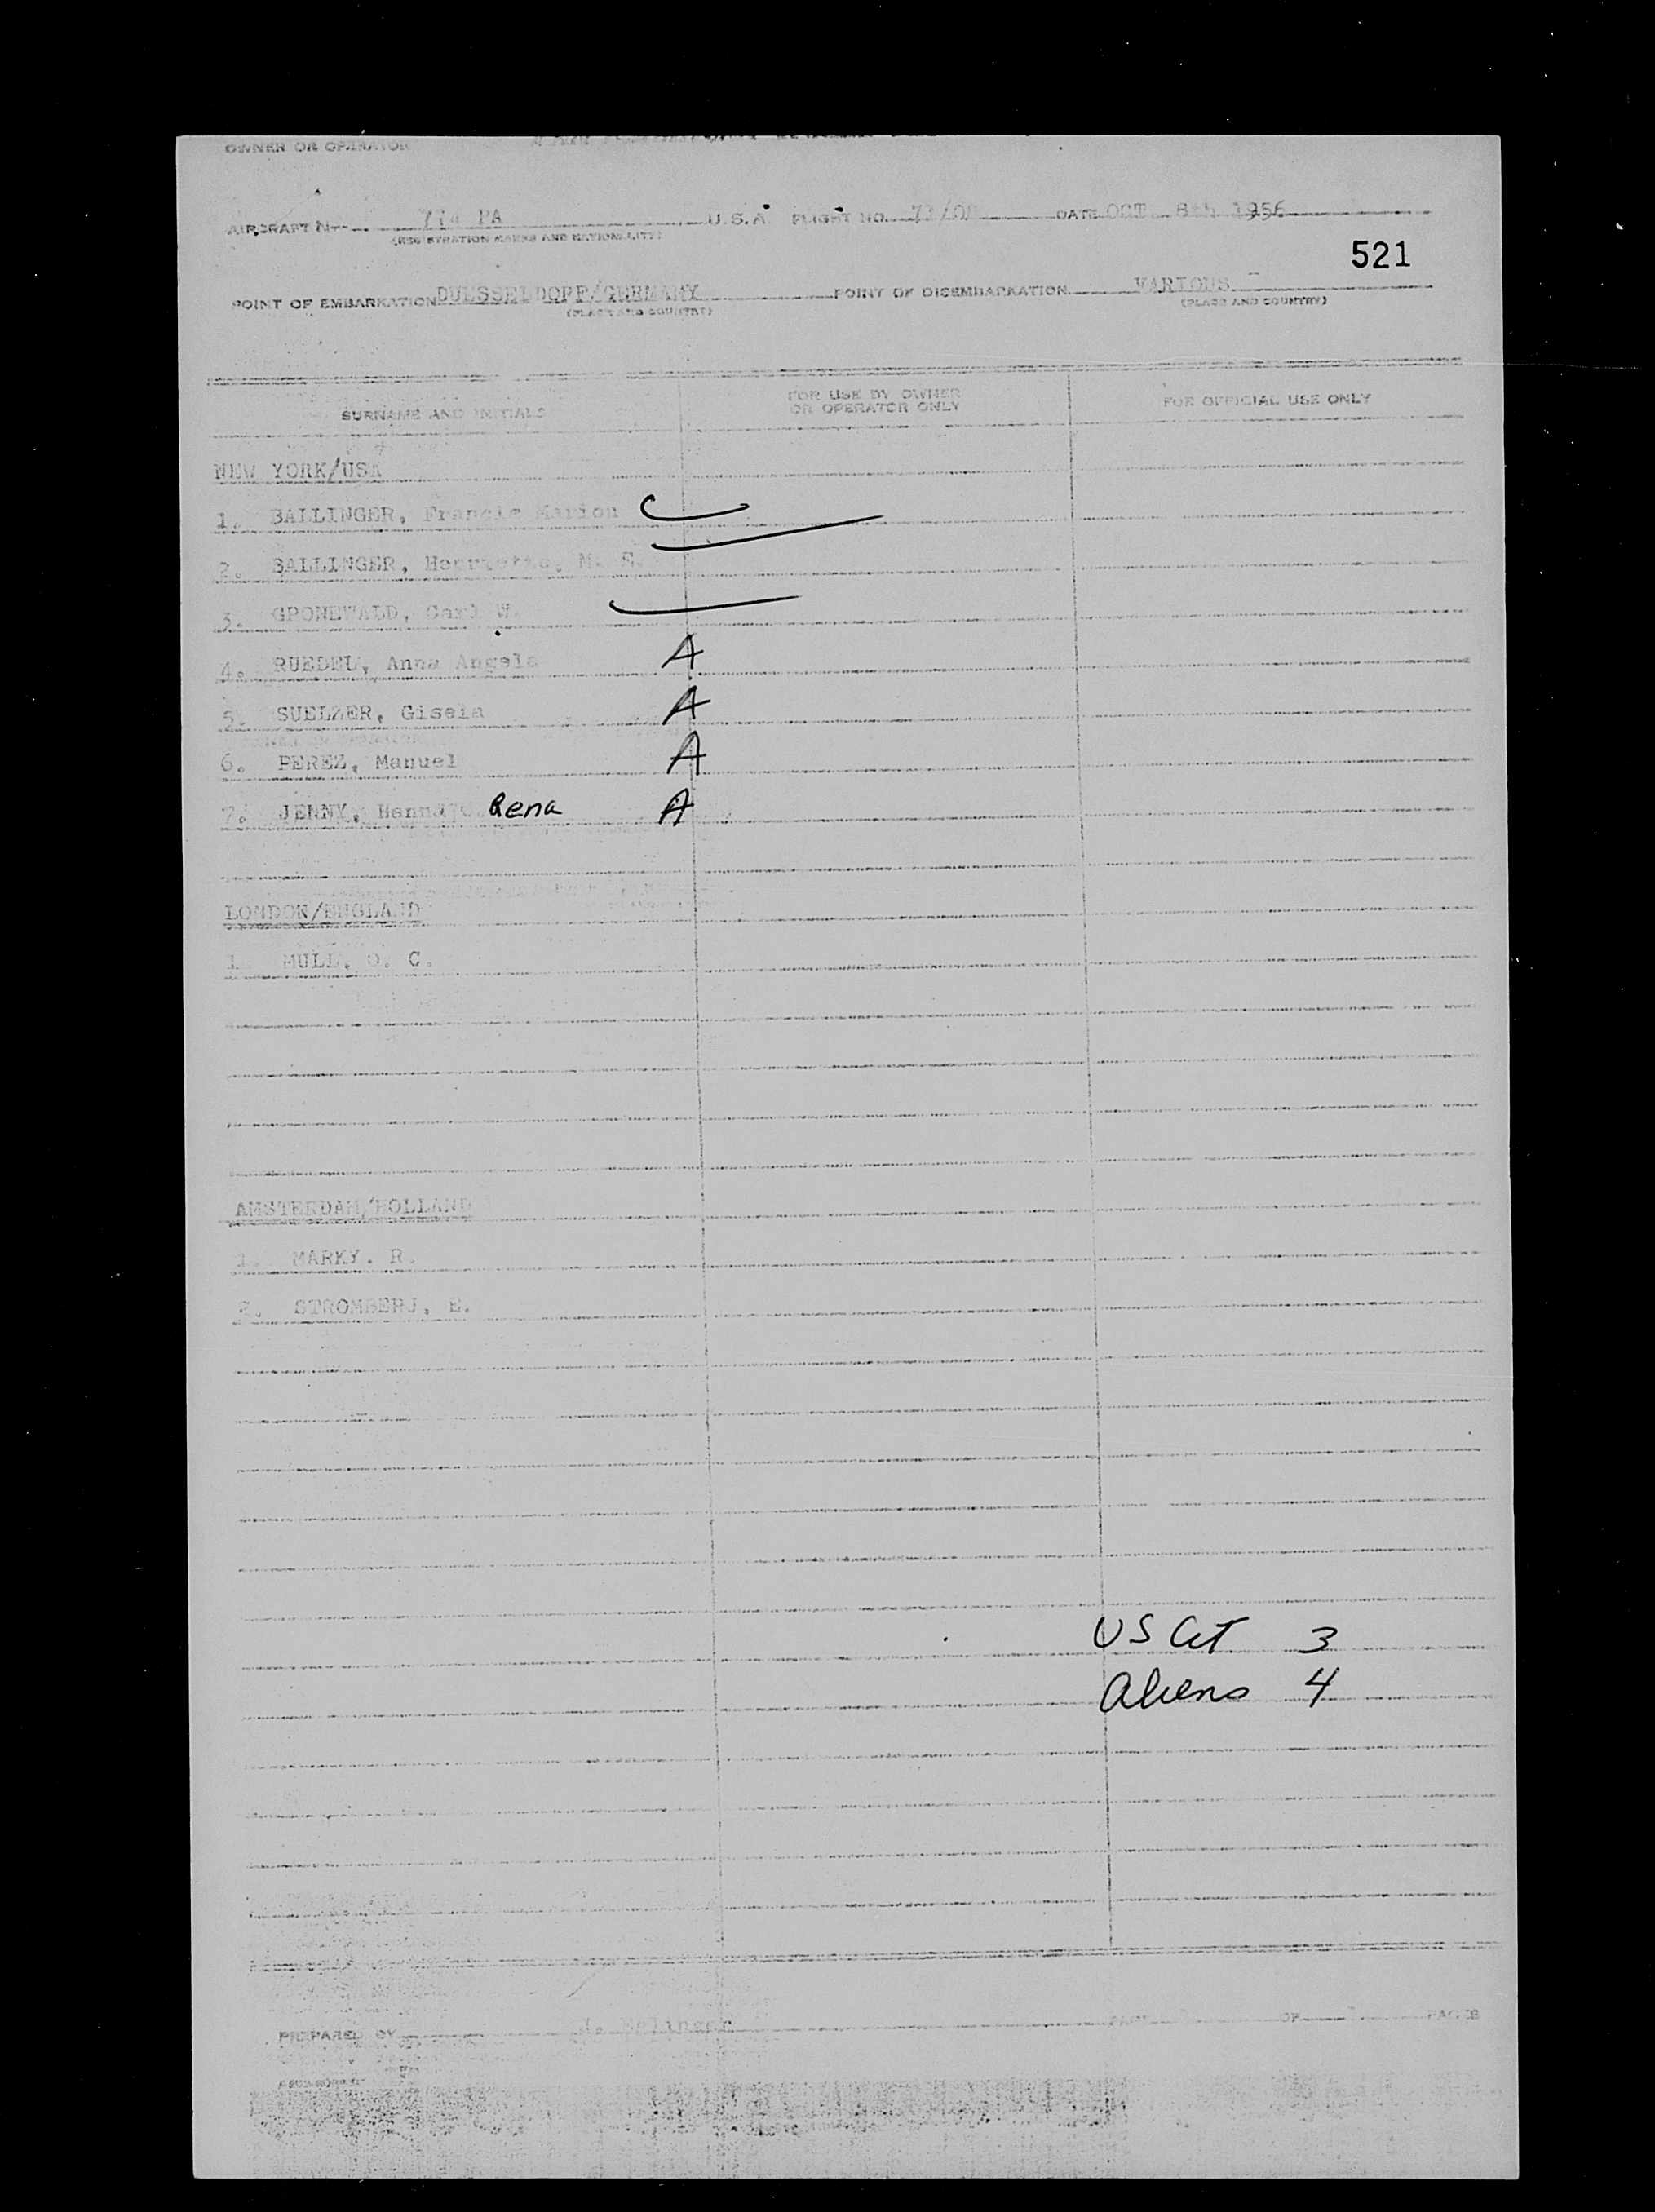 OWNER OR OPERATOR
AIRCRAFT N PA U.S.A. FLIGHT NO. DATE OCT 8th 1956
(REGISTRATION MARKS AND NATIONALITY)
521
POINT OF EMBARKATION DUESSELDORF/GERMANY POINT OF DISEMBARKATION VARIOUS
(PLACE AND COUNTRY) (PLACE AND COUNTRY)
SURNAME AND INITIALS FOR USE BY OWNER OR OPERATOR ONLY FOR OFFICIAL USE ONLY
NEW YORK/USA
1. BALLINGER, Francis Marion
2. BALLINGER, M. E.
3. GRONEWALD, Carl W.
4. Anna Angela A
5. SUELZER, Gisela A
6. PEREZ, Manuel A
7. JENNY, Rena A
LONDON/ENGLAND
1 MULL, O. C.
AMSTERDAM/HOLLAND
1. MARKY. R.
2. STROMBERJ, E.
US Cit 3
Aliens 4
PREPARED BY PAGE OF PAGES